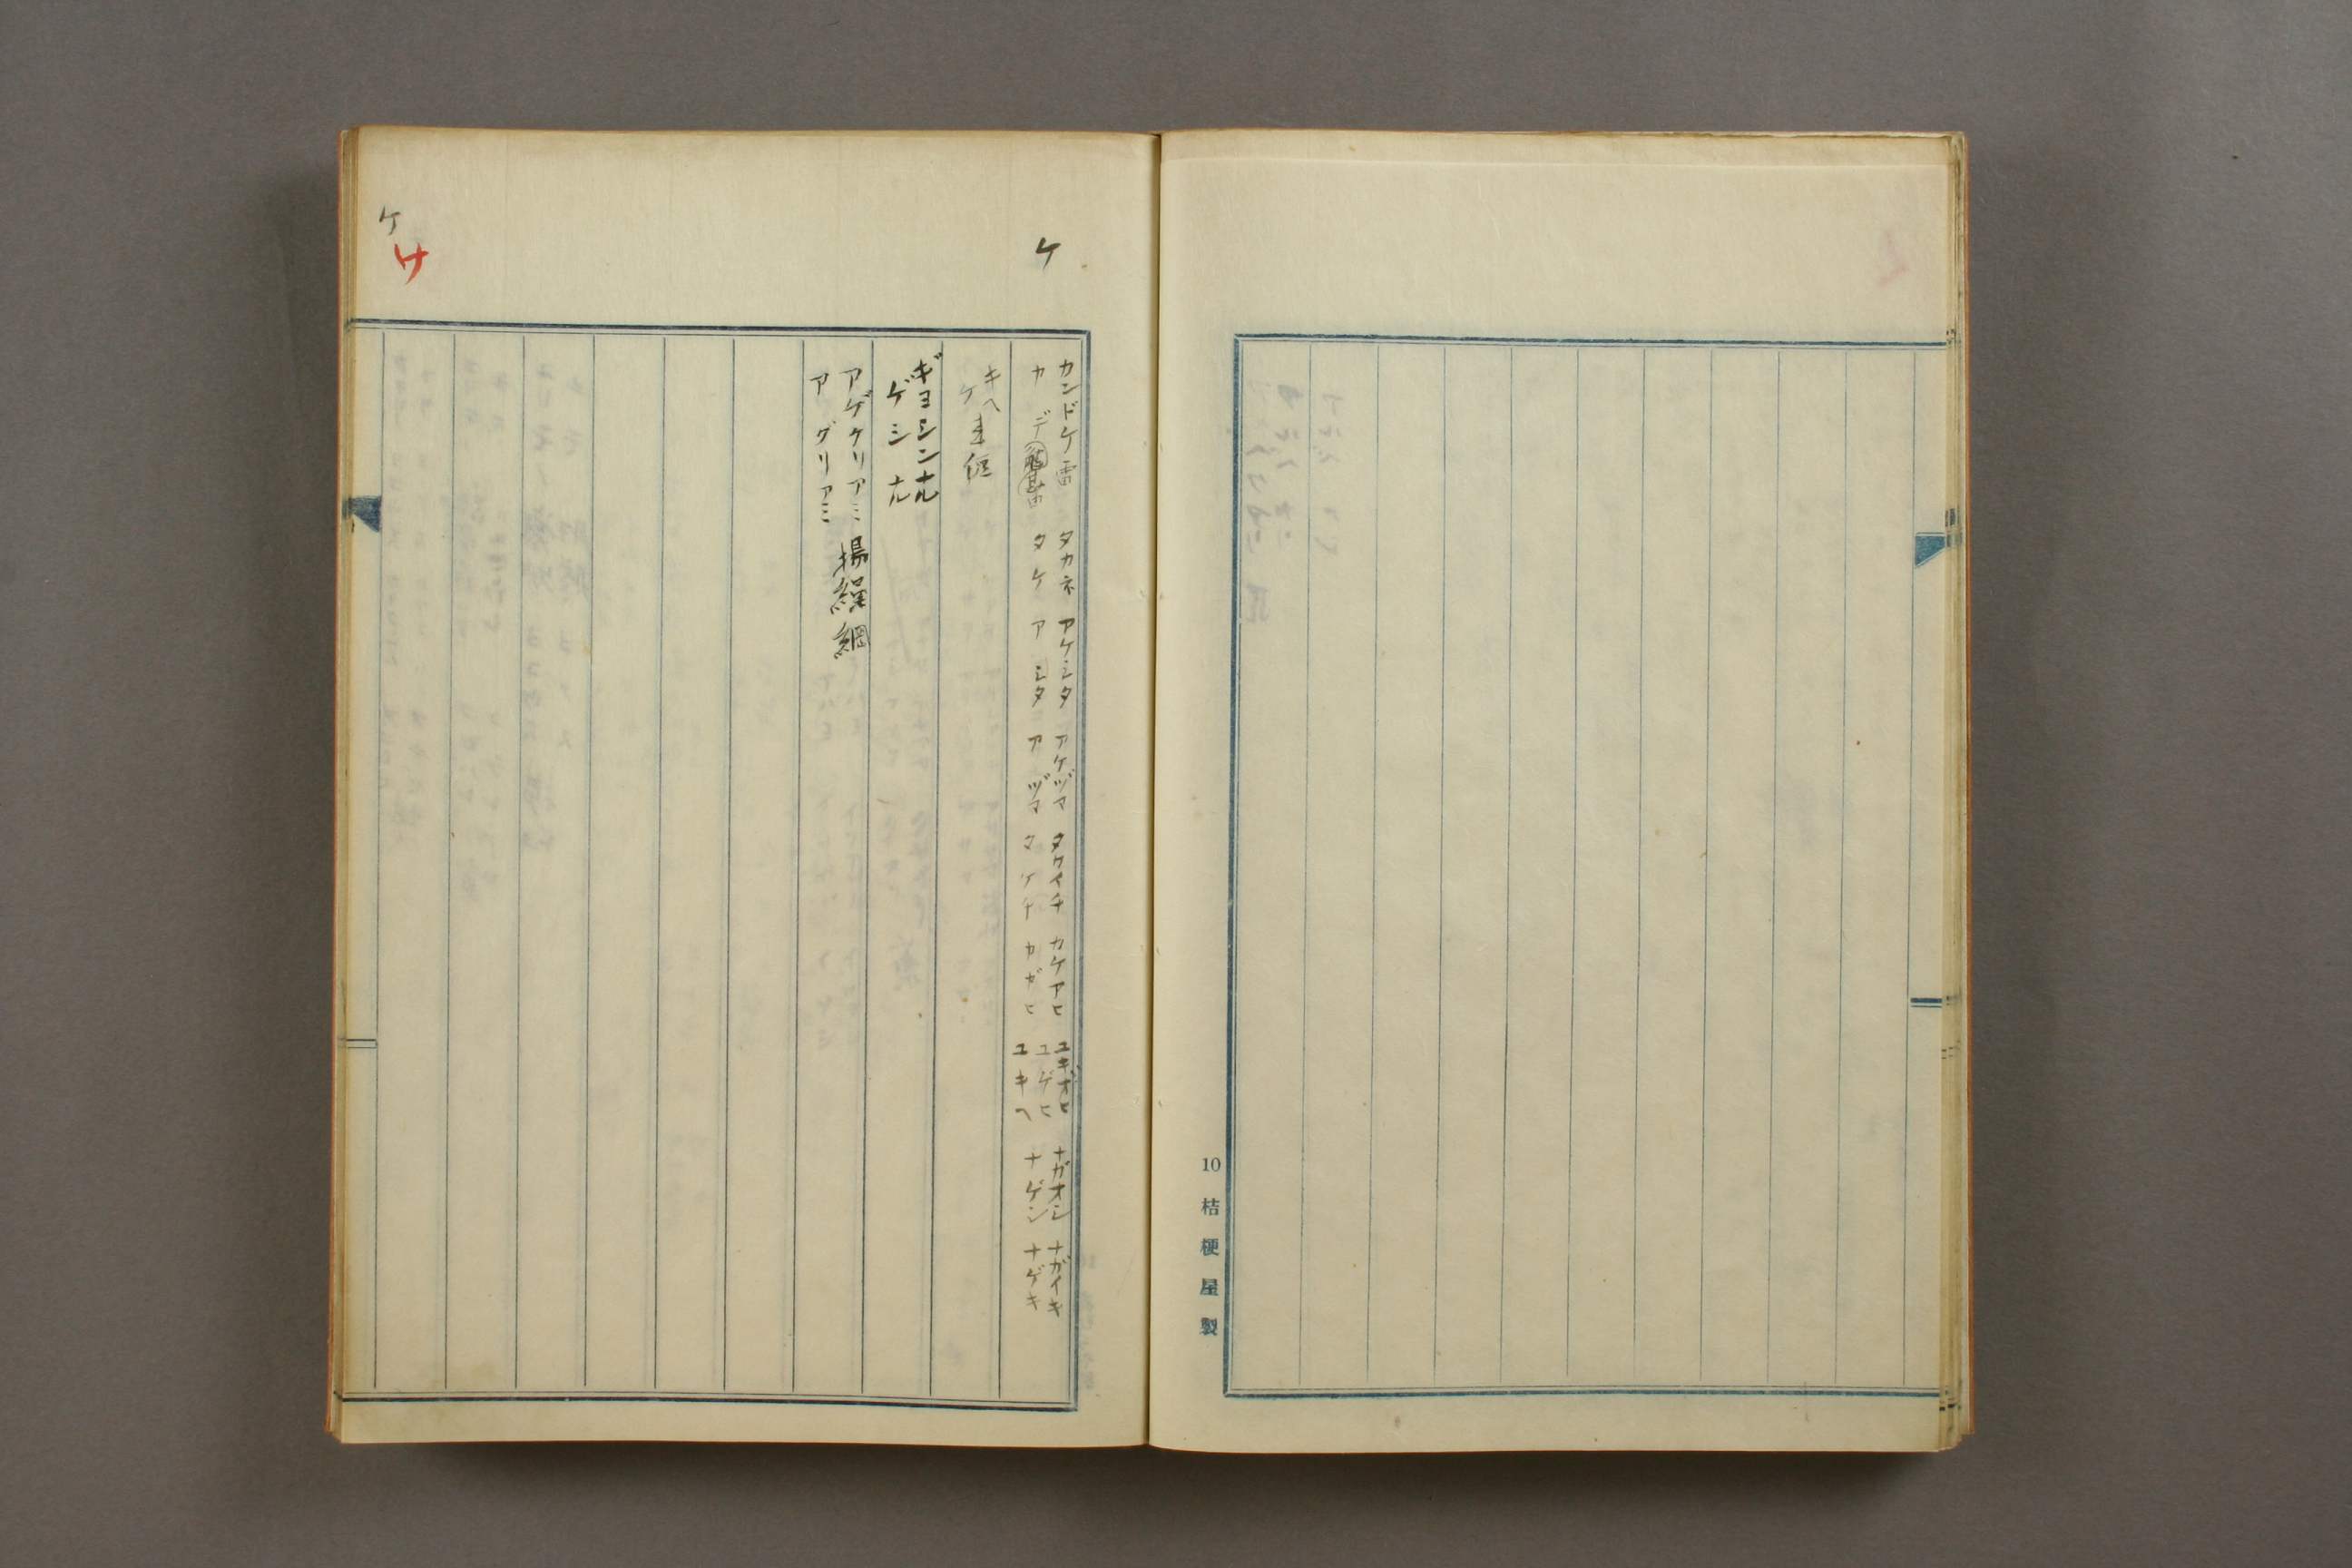 10 桔梗屋製
ケ
カンドケ雷 タカネ アケシタ アケヅマ タケイチ カケアヒ ユキオヒ ナガオシ ナガイキ
カ デ タケ ア シタ ア ヅマ マ ケチ カガヒ ユゲヒ ナゲシ ナゲキ
ユキヘ
キヘ
ケ
ギヨシンナル
ゲシナル
アゲケリアミ 揚繰網
ア グリアミ
ケ
け